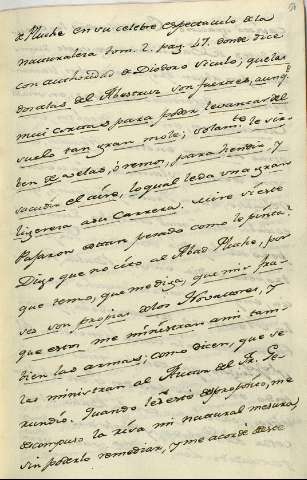 de Pluche en su celebre espectaculo de la
naturaleza tom. 2. pag. 47. donde dice
con authoridad de Diodoro Siculo; que las
dos alas del Abestruz son fuertes, aunqᵉ
mui cortas para poder levantar del
suelo tan gran mole; solamᵗᵉ le sir-
ben de velas, ò remos, para hendir, y
sacudir el aire, lo qual le da una gran
ligereza a su Carrera. mire si este
Pajaron es tan pesado como lo pinta?
Digo que no cito al Abad Pluche, por
que temo, que me diga, que mis fra-
ses son propias de los Novatores, y
que estos me ministran a mi tam-
bien las armas; como dicen, que se
las ministran al Autor del Fr. Ge-
rundio. Quando leì este despropósito, me
descompuso la risa mi natural mesura
sin poderlo remediar, y me acordè de este